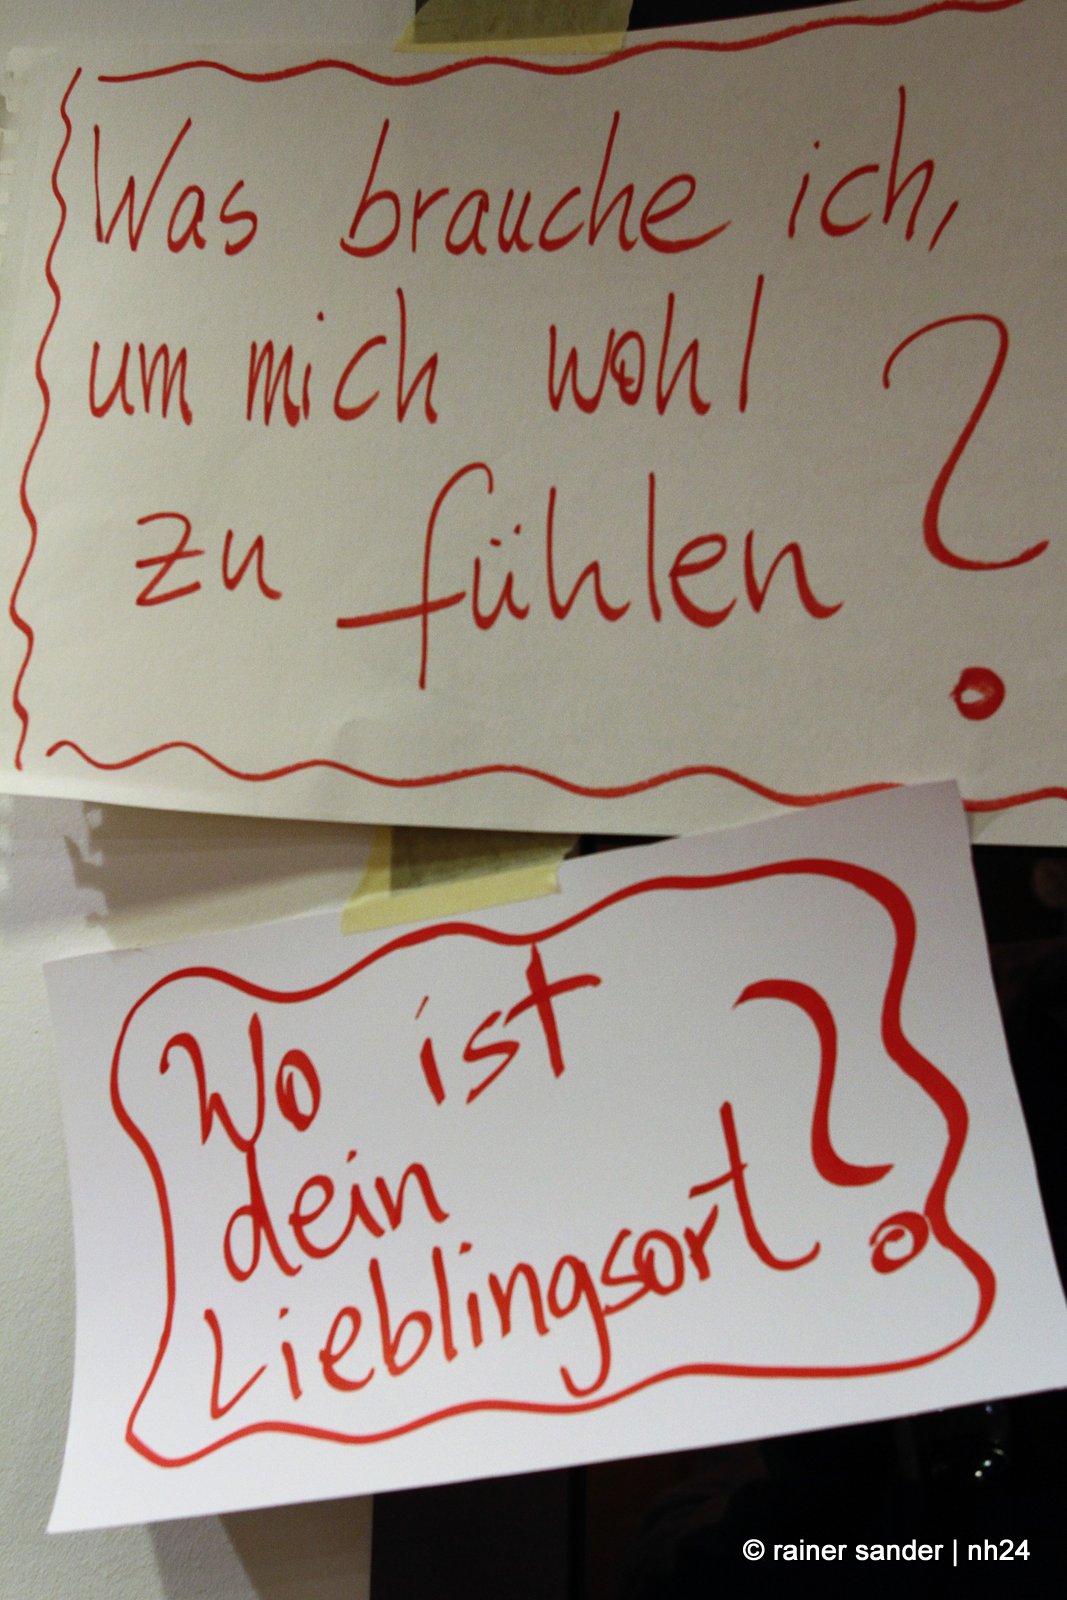 Was brauche ich,
um mich wohl
zu fühlen ?
Wo ist
dein
Lieblingsort ?
© rainer sander | nh24